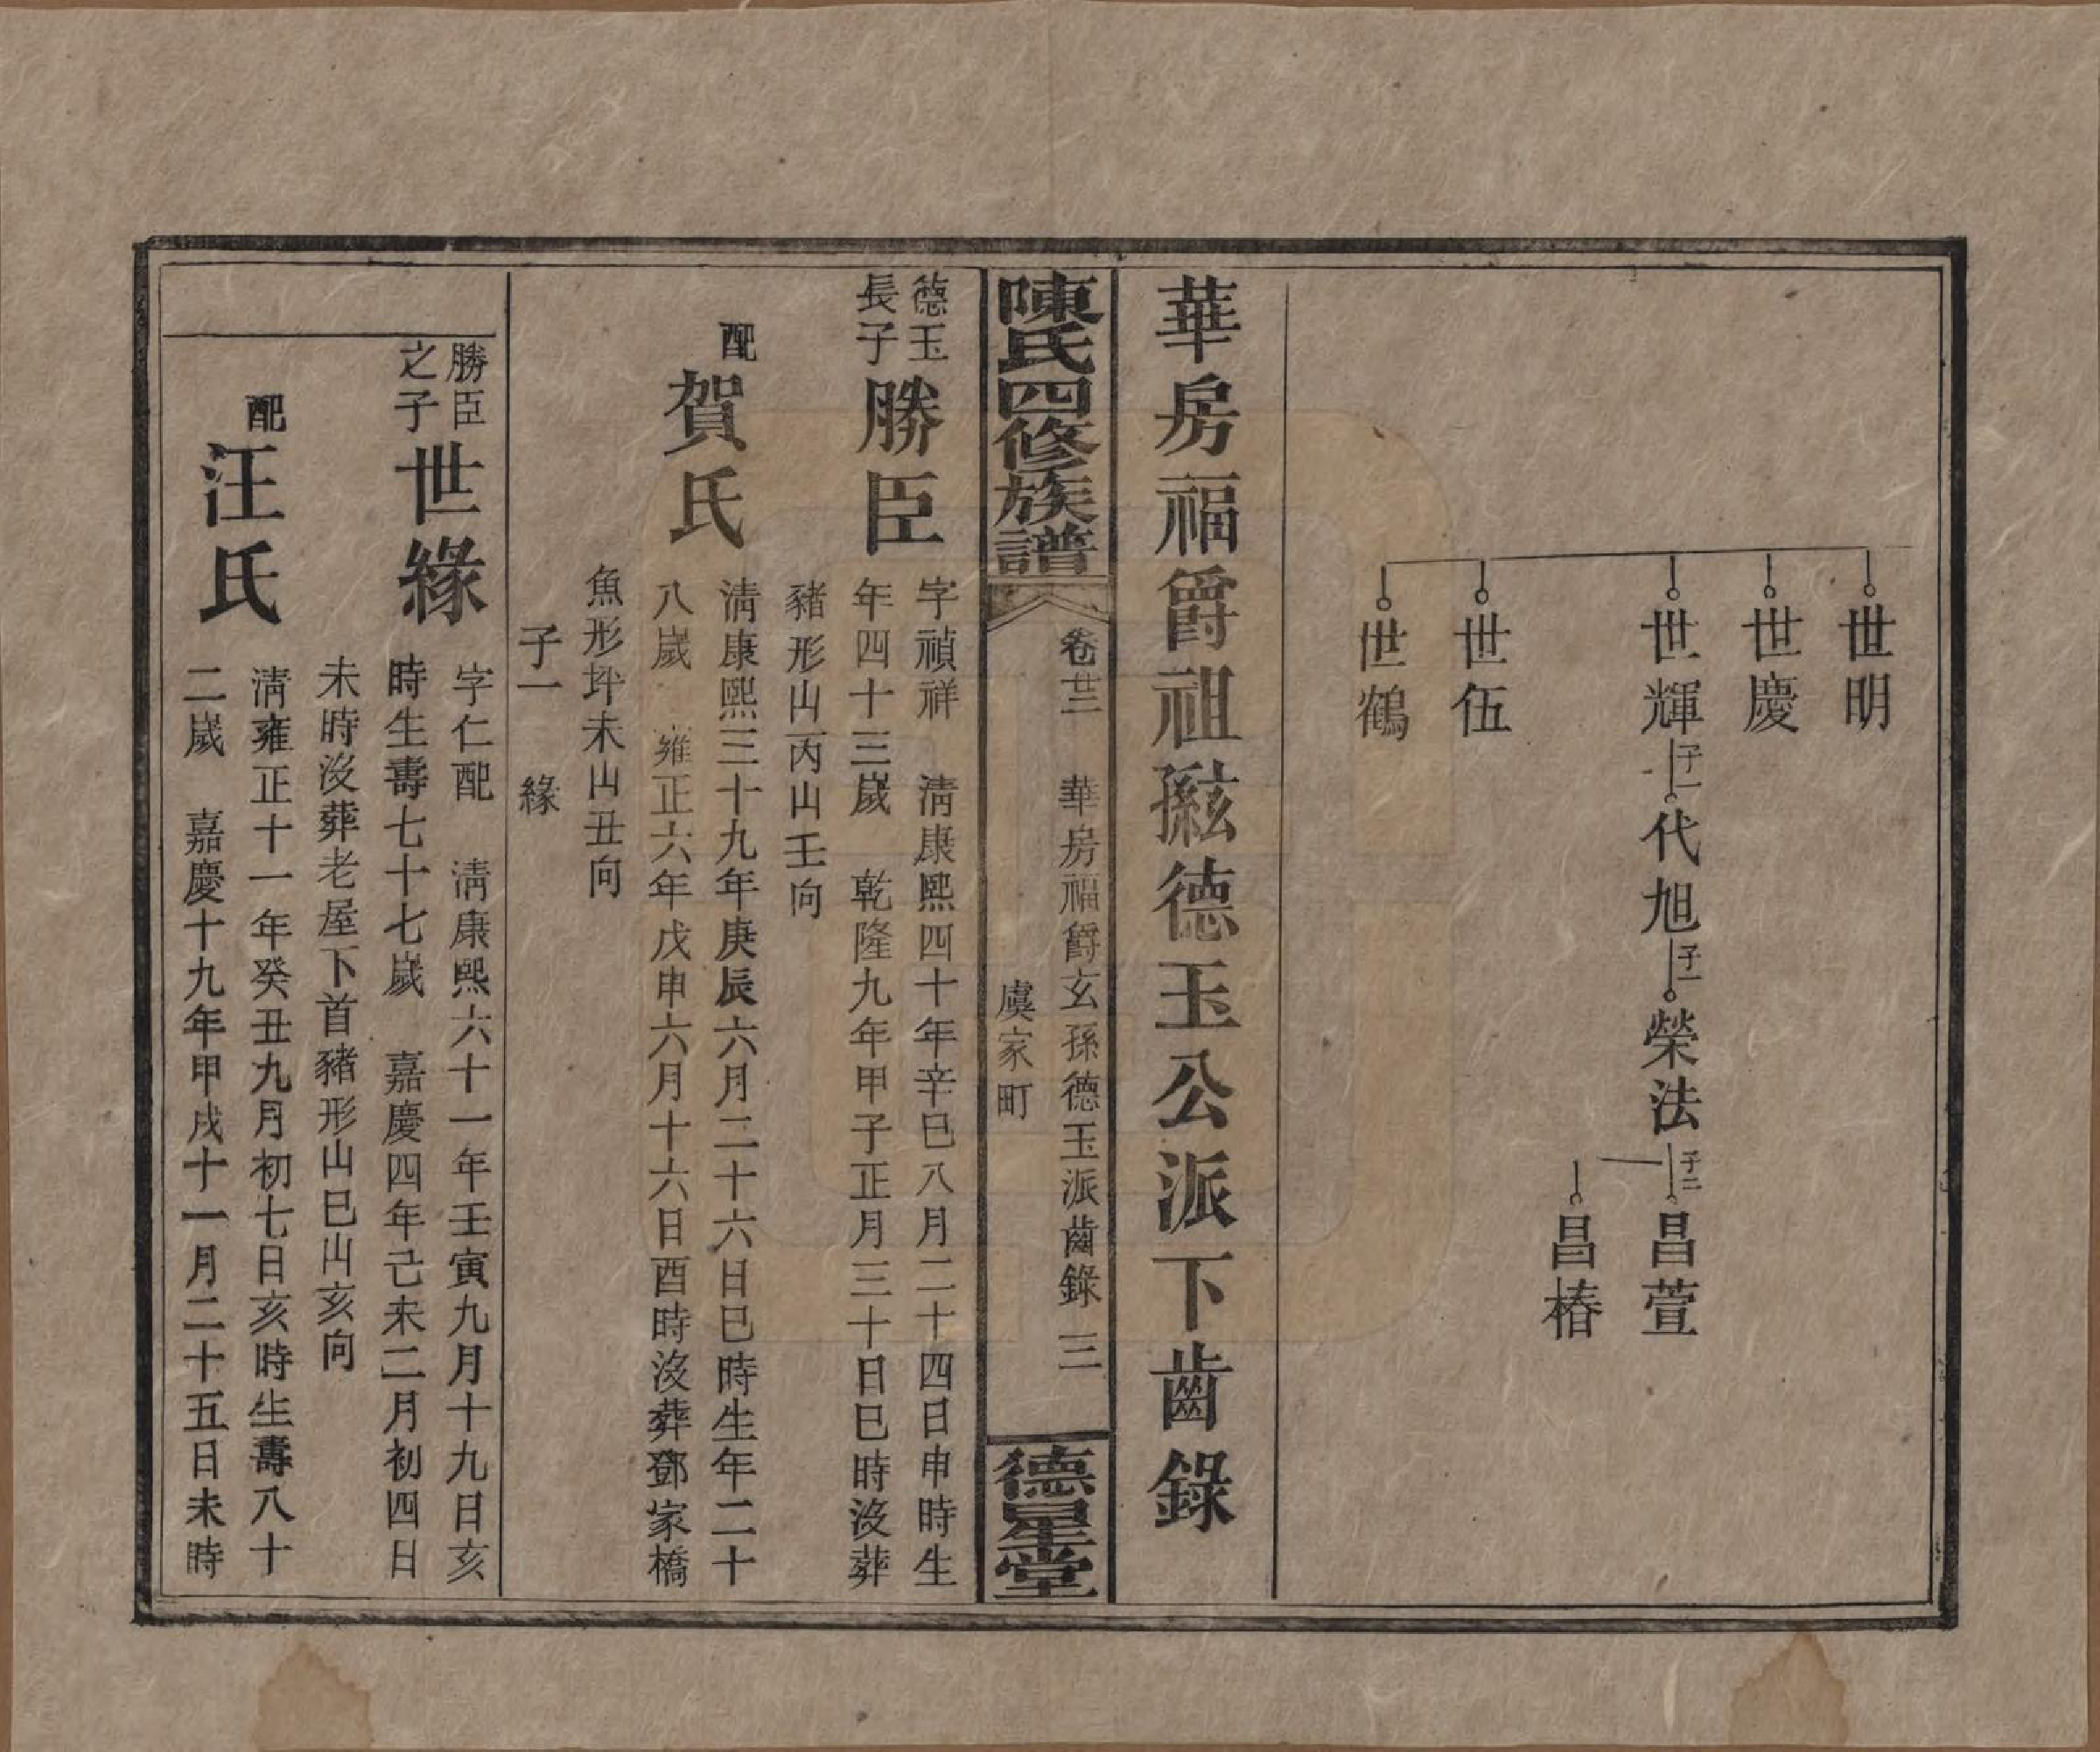 世明
世慶
世輝 子一 代旭 子一 榮法 子二 昌萱
昌椿
世伍
世鶴
華房福爵祖玄孫德玉公派下齒錄
陳氏四修族譜
卷廿三 華房福爵玄孫德玉派齒錄 三
虞家町
德星堂
德玉
長子
勝臣
字禎祥 淸康熙四十年辛巳八月二十四日申時生
年四十三嵗 乾隆九年甲子正月三十日巳時沒葬
豬形山丙山壬向
配
賀氏
淸康熙三十九年庚辰六月二十六日巳時生年二十
八嵗 雍正六年戊申六月十六日酉時沒葬鄧家橋
魚形坪未山丑向
子一 緣
勝臣
之子
世緣
字仁配 淸康熙六十一年壬寅九月十九日亥
時生壽七十七嵗 嘉慶四年己未二月初四日
未時沒葬老屋下首豬形山巳山亥向
配
汪氏
淸雍正十一年癸丑九月初七日亥時生壽八十
二嵗 嘉慶十九年甲戌十一月二十五日未時